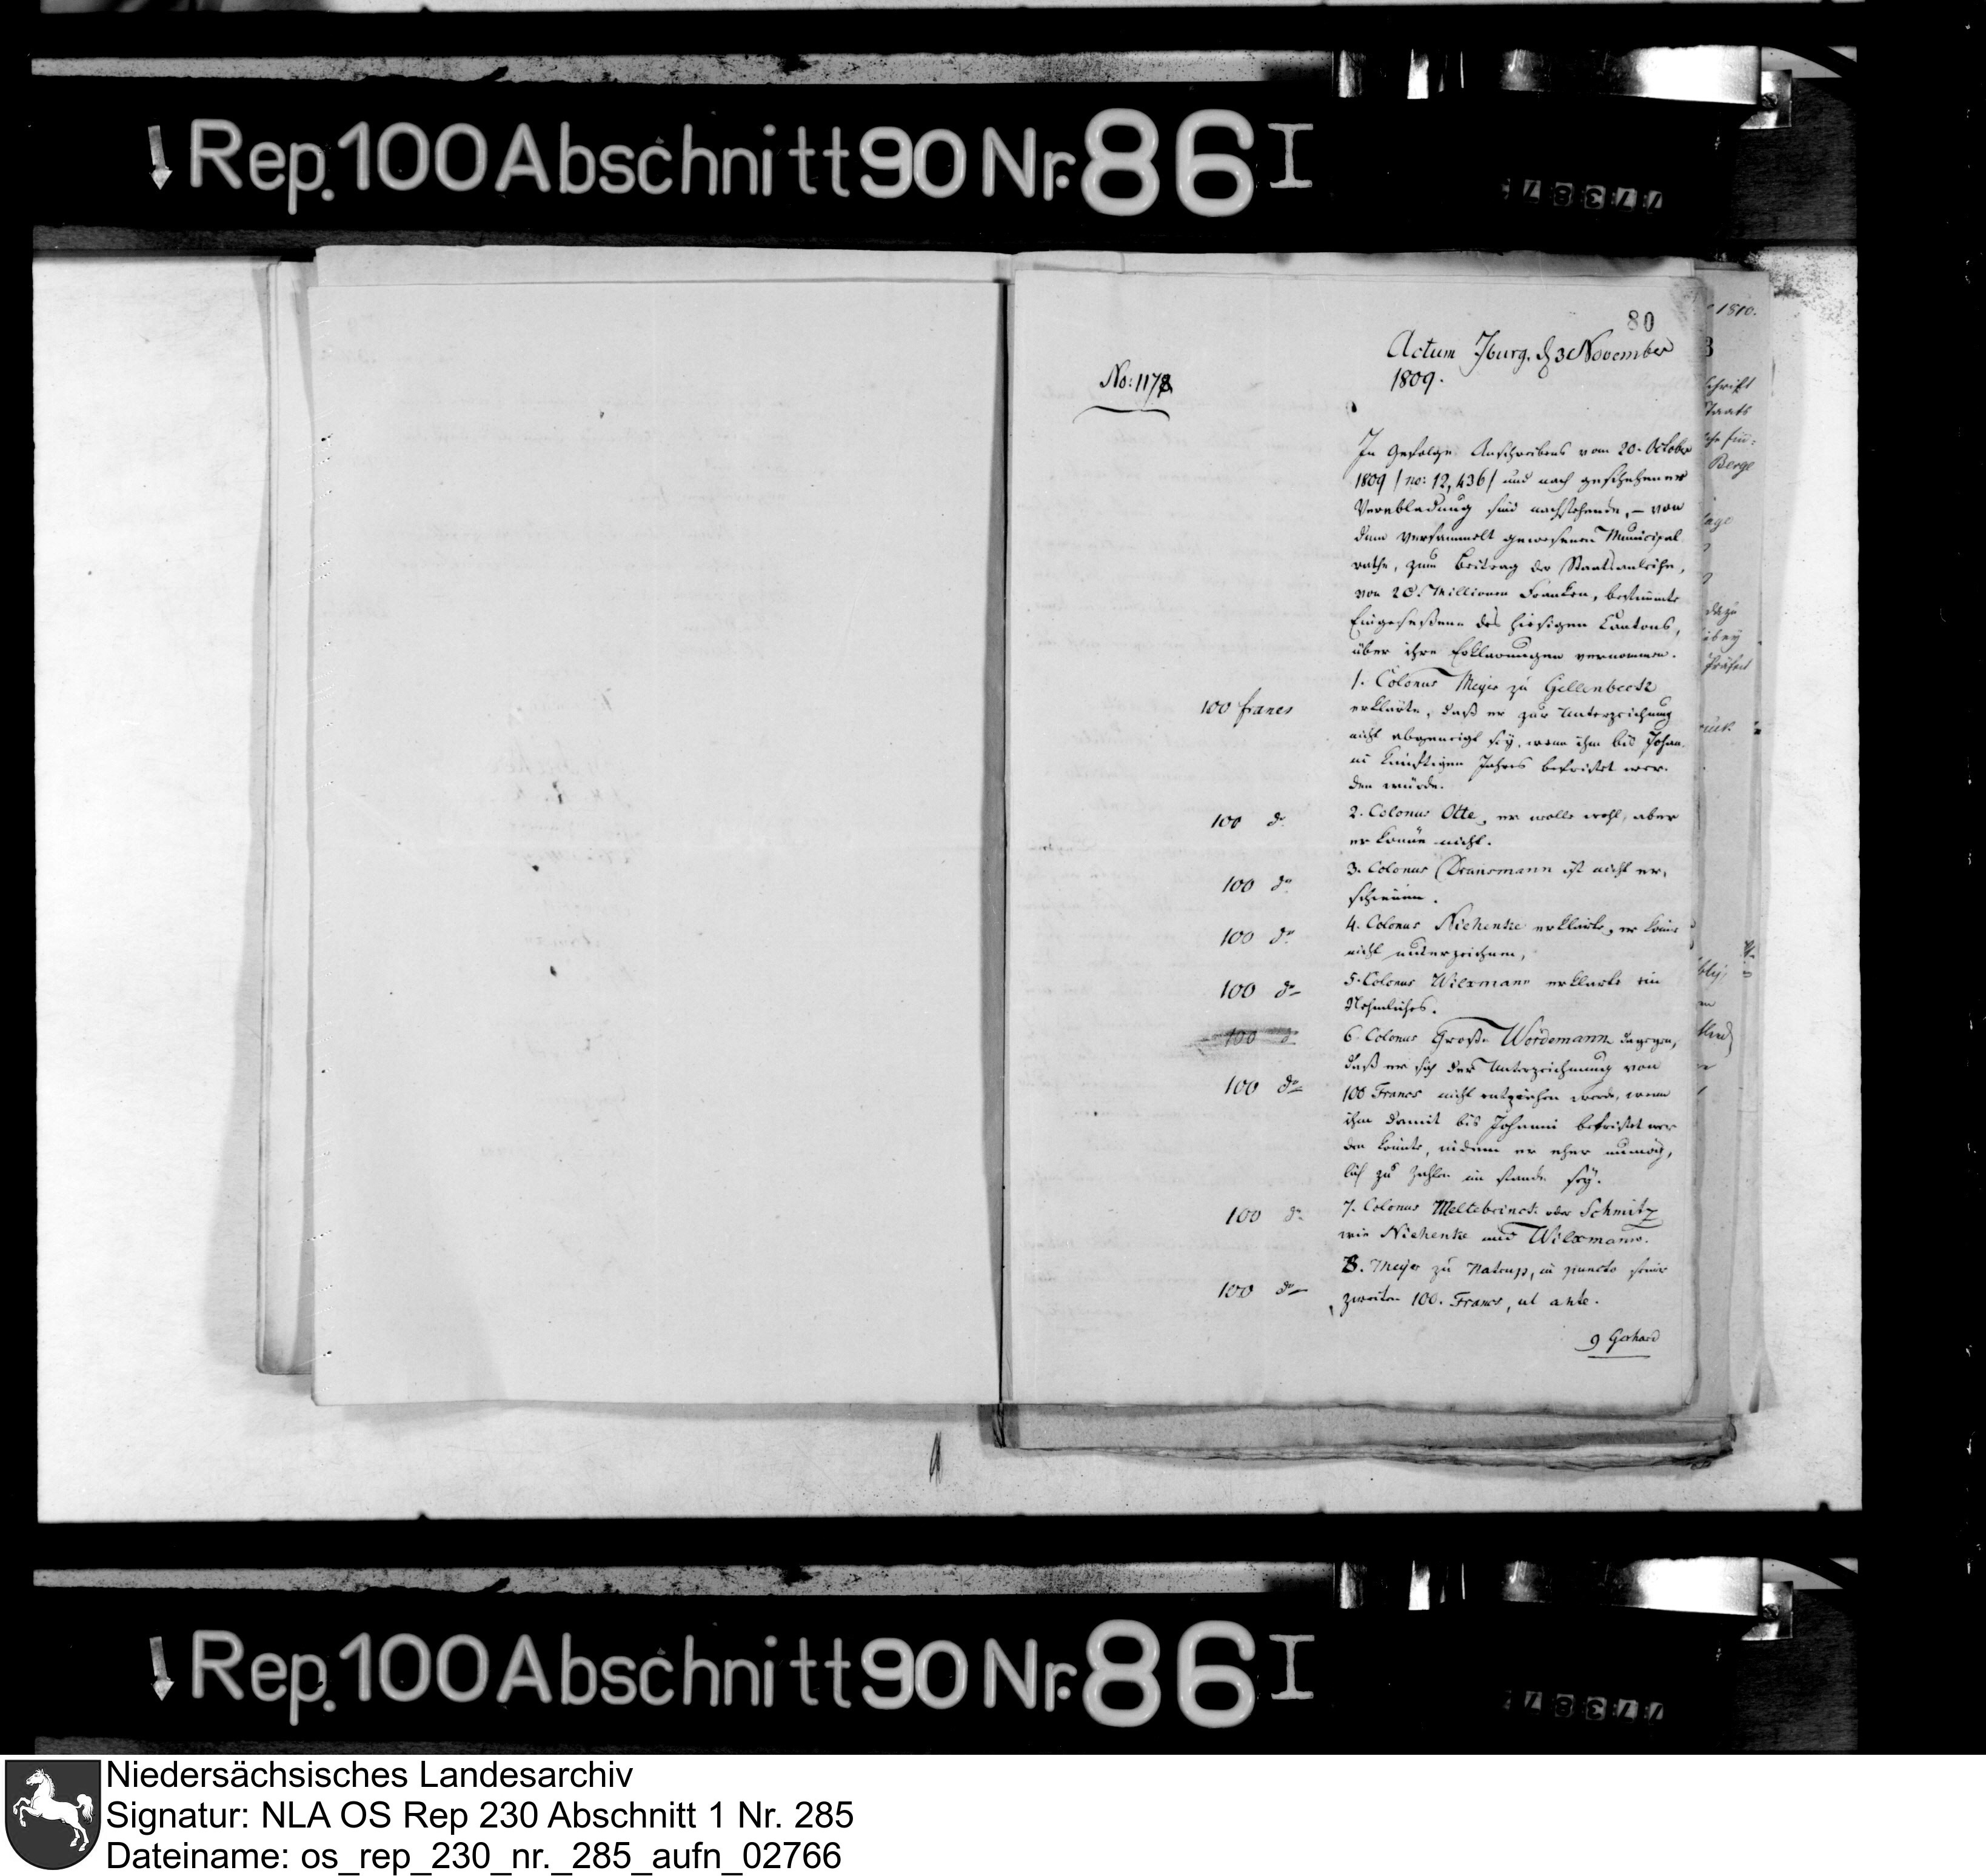 Rep. 100 Abschnitt 90 Nr. 86 I
77387
80
Actum Iburg, d 3 November
1809.
No: 1178
In Gefolge Anschreibens vom 20. October
1809 / no: 12,436 / und nach geschehener
Verabladung sind nachstehende, – von
dem versammelt gewesenen Municipal
rathe, zum Beitrag der Staatsanleihe,
von 20. Millionen Franken, bestimmte
Eingeseßene des hiesigen Cantons,
über ihre Erklärungen vernommen.
1. Colonus Meyer zu Gellenbeck
100 francs
erklärte, daß er zur Unterzeichnung
nicht abgeneigt sey, wenn ihm bis Johan
ni künftigen Jahres befristet wer
den würde.
100 do 2. Colonus Otte, er wolle wohl, aber
er könne nicht.
3. Colonus Dransmann ist nicht er,
100 do
schienen.
4. Colonus Niehenke erklärte, er könne
100 do
nicht unterzeichnen,
100 do 5. Colonus Wilxmann erklärte ein
Nehmliches.
100 do 6. Colonus Große Wördemann dagegen,
daß er sich der Unterzeichnung von
100 do 100 Francs nicht entziehen werde, wenn
ihm damit bis Johanni befristet wer
den könnte, indem er eher unmög,
lich zu zahlen im stande sey.
100 do 7. Colonus Meltebrinck oder Schmitz
wie Niehenke und Wilxmann.
8. Meyer zu Natrup, in puncto seiner
100 do zweiten 100. Francs, ut ante.
9 Gerhard
1810.
schrift
Staats
Berge
dazu
Rep. 100 Abschnitt 90 Nr. 86 I
77387
Niedersächsisches Landesarchiv
Signatur: NLA OS Rep 230 Abschnitt 1 Nr. 285
Dateiname: os_rep_230_nr._285_aufn_02766